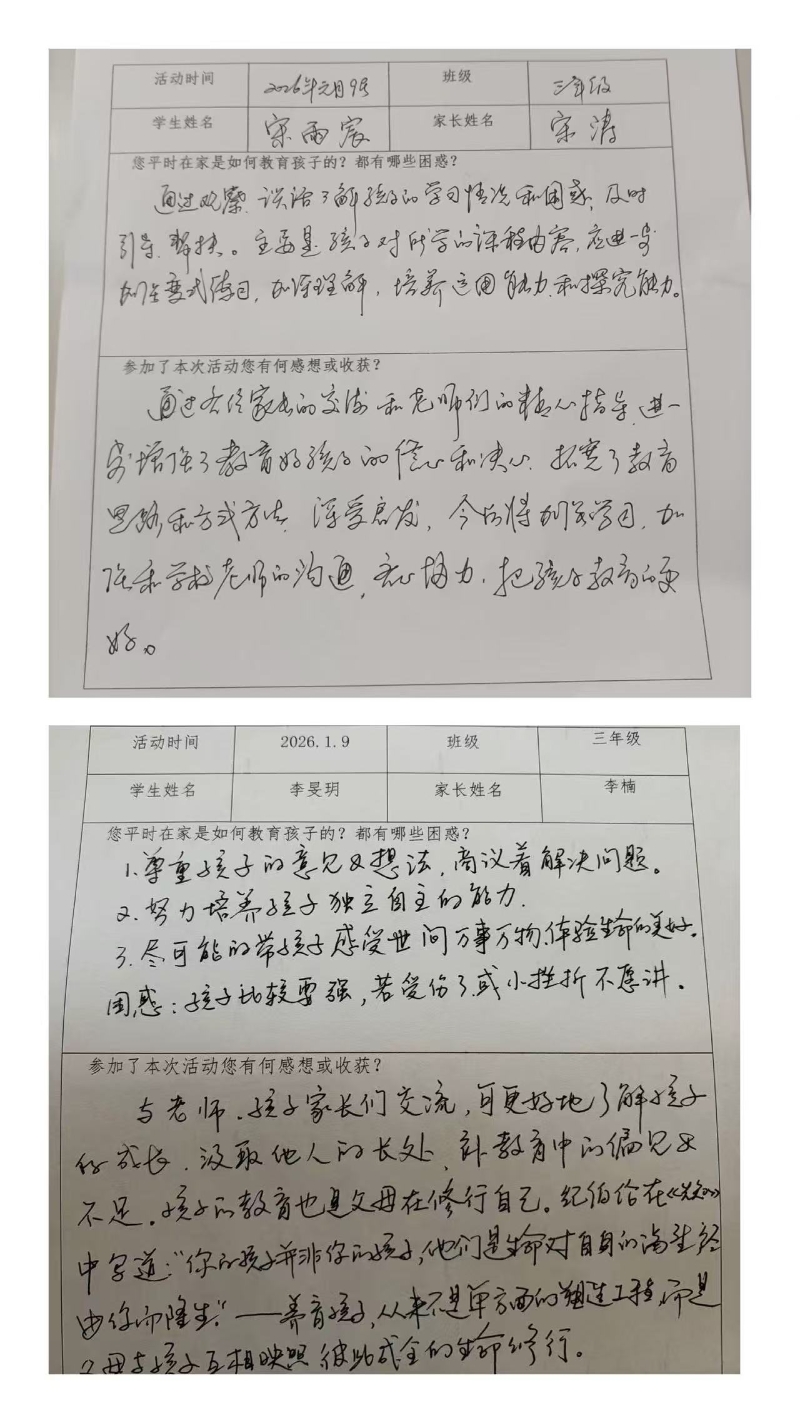 活动时间 2026年元月9号 班级 三年级
学生姓名 宋雨宸 家长姓名 宋涛
您平时在家是如何教育孩子的？都有哪些困惑？
通过观察、谈话了解孩子的学习情况和困惑，及时
引导、帮扶。主要是孩子对所学的课程内容，应进一步
加强变式练习，加深理解，培养运用能力和探究能力。
参加了本次活动您有何感想或收获？
通过各位家长的交流和老师们的精心指导，进一
步增强了教育好孩子的信心和决心，拓宽了教育
思路和方式方法，深受启发，今后将加强学习，加
强和学校老师的沟通，齐心协力，把孩子教育的更
好。
活动时间 2026.1.9 班级 三年级
学生姓名 李旻玥 家长姓名 李楠
您平时在家是如何教育孩子的？都有哪些困惑？
1.尊重孩子的意见及想法，商议着解决问题。
2.努力培养孩子独立自主的能力.
3.尽可能的带孩子感受世间万事万物、体验生命的美好。
困惑：孩子比较要强，若受伤了或小挫折不愿讲。
参加了本次活动您有何感想或收获？
与老师、孩子家长们交流，可更好地了解孩子
的成长，汲取他人的长处、补教育中的偏见及
不足。孩子的教育也是父母在修行自己。纪伯伦在《先知》
中写道："你的孩子并非你的孩子，他们是生命对自身的渴望经
由你而降生。"——养育孩子，从来不是单方面的塑造工程，而是
父母与孩子互相映照、彼此成全的生命修行。